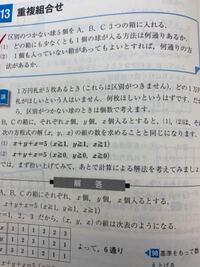 13 重複組合せ
区別のつかない球5個を A, B, C 3つの箱に入れる.
(1) どの箱にも少なくとも1個の球が入る方法は何通りあるか.
(2) 1個も入っていない箱があってもよいとすれば, 何通りの方
法があるか.
1万円札が5枚あるとき(これらは区別がつきません), どの1万円
札がほしいという人はいません. 何枚ほしいというはずです. だか
ら, 区別のつかないときは個数で考えます.
B, C の箱に, それぞれ x個, y個, z個入るとすると, (1), (2)は, それ
次の方程式の解(x, y, z)の組の数を求めることと同じになります.
(1) x+y+z=5 (x≧1, y≧1, z≧1)
(2) x+y+z=5 (x≧0, y≧0, z≧0)
では, まず拾い上げてみて, あとで計算による解法を考えてみましょ
解 答
A, B, C の箱にそれぞれ, x個, y個, z個入るとすると,
x+y+z=5 (x≧1, y≧1, z≧1)
=1, 2, 3 だから, 次の表のようになる.
x 1 1 1 2 2 3
よって, 6通り